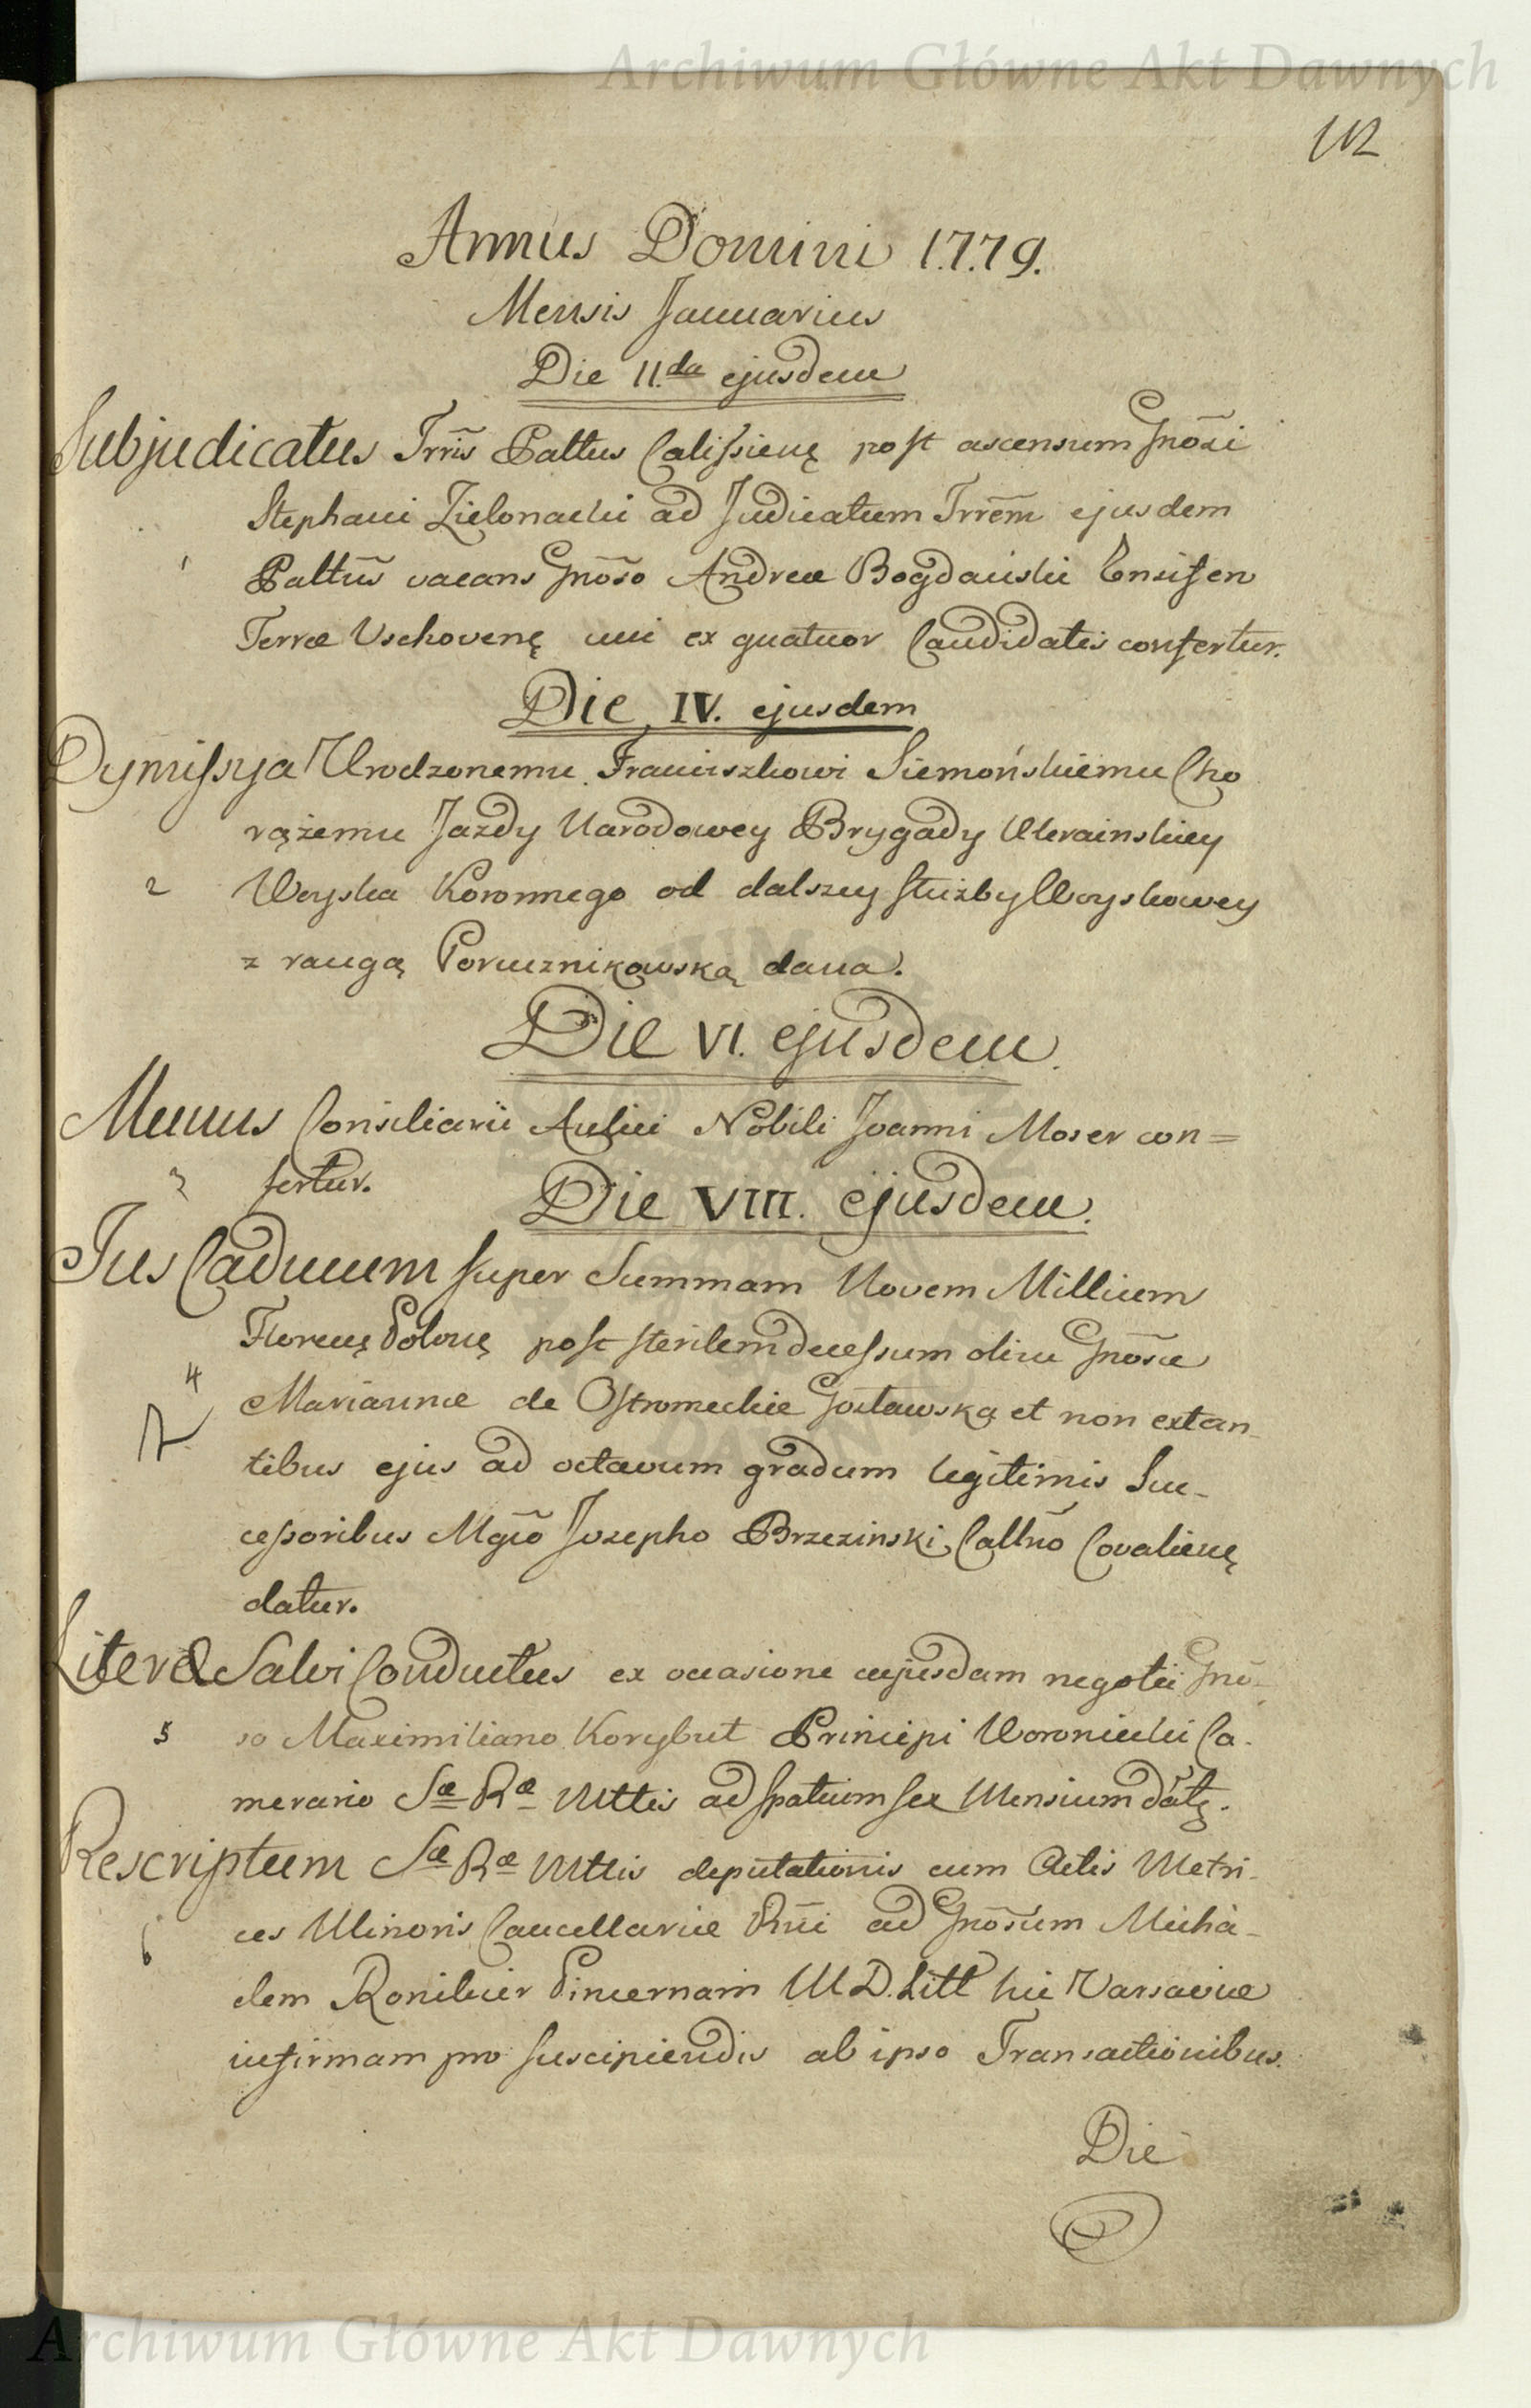 Archiwum Główne Akt Dawnych
112
Annus Domini 1.7.79.
Mensis Januarius
Die II.da ejusdem
Subjudicatus Trris Pałtus Calissienę post ascensum Gnosi
Stephani Zielonacki ad Judicatum Trrem ejusdem
1
Pałtus vacans Gnoso Andreæ Bogdański Ensifero
Terræ Vschovenę uni ex quatuor Candidatis confertur.
Die IV. ejusdem
Dymissya Urodzonemu Franciszkowi Siemońskiemu Cho
rążemu Jazdy Narodowey Brygady Ukrainskiey
2
Woyska Koronnego od dalszey służby Woyskowey
z rangą Porucznikowską dana.
Die VI. ejusdem.
Munus Consiliarii Aulici Nobili Joanni Moser con=
3
fertur.
Die VIII. ejusdem.
Jus Caducum super Summam Novem Millium
Florenę Polonę post sterilem decessum olim Gnosæ
4
Mariannæ de Ostromeckie Gostawską et non extan-
tibus ejus ad octavum gradum legitimis Suc-
cessoribus Mgco Josepho Brzezinski Cattno Covalienę
datur.
Literæ Salvi Conductus ex occasione cujusdam negotii Gno-
5
so Maximiliano Korybut Principi Woroniecki Ca-
merario Sæ Ræ Mttis ad spatium sex Mensium datę.
Rescriptum Sæ Ræ Mttis deputationis cum Actis Metri-
ces Minoris Cancellariæ Rni ad Gnosum Micha-
6
elem Ronikier Pincernam M.D. Litt hic Varsaviæ
infirmam pro suscipiendis ab ipso Transactionibus.
Die
Archiwum Główne Akt Dawnych